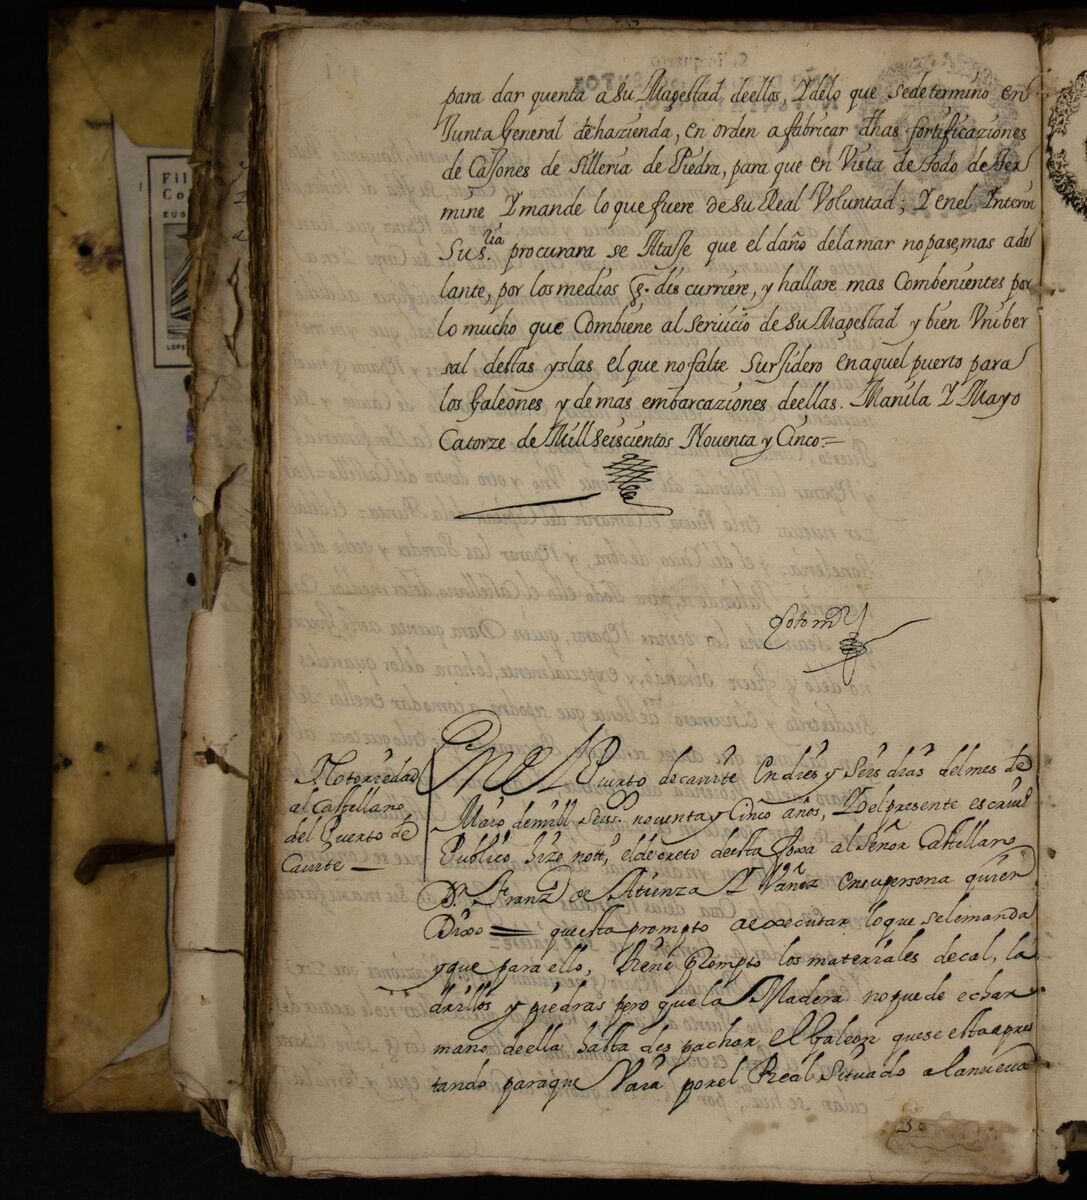 para dar quenta a Su Magestad deellos, Y delo que sedetermino en
Junta General de hazienda, en orden a fabricar dhas fortificaziones
de Cajones de silleria de Piedra, para que en Vista de todo deter
mine Y mande lo que fuere de Su Real Voluntad; Y enel Interin
Su s.ria procurara se Ataje que el daño delamar no pase, mas adel
lante, por los medios q. discurriere, y hallare mas Combenientes por
lo mucho que Combiene al seruicio de Su Magestad y bien Vniber
sal destas yslas el que no falte Surjidero en aquel puerto para
los Galeones y demas embarcaziones deellas. Manila Y Mayo
Catorze de Mill seiscientos Nouenta y Cinco=
Notoriedad
al Castellano
del Puerto de
Cauite
En el Puerto de cauite En dies y Seis dias del mes de
Maio demill Seiss. nouenta y Cinco años, Yo el presente escriuº
Publico hize nottª el decreto de esta foxa al Señor Castellano
Dn Franco de Atienza Y Vañez en su persona quien
Dixo = que esta prompto a executar lo que se le manda
y que para ello, tiene Prompto los materiales de cal, la
drillos y piedras pero que la Madera no puede echar
mano de ella hasta des pachar el Galeon que se esta apres
tando para que Vaia por el Real Situado a la nueua